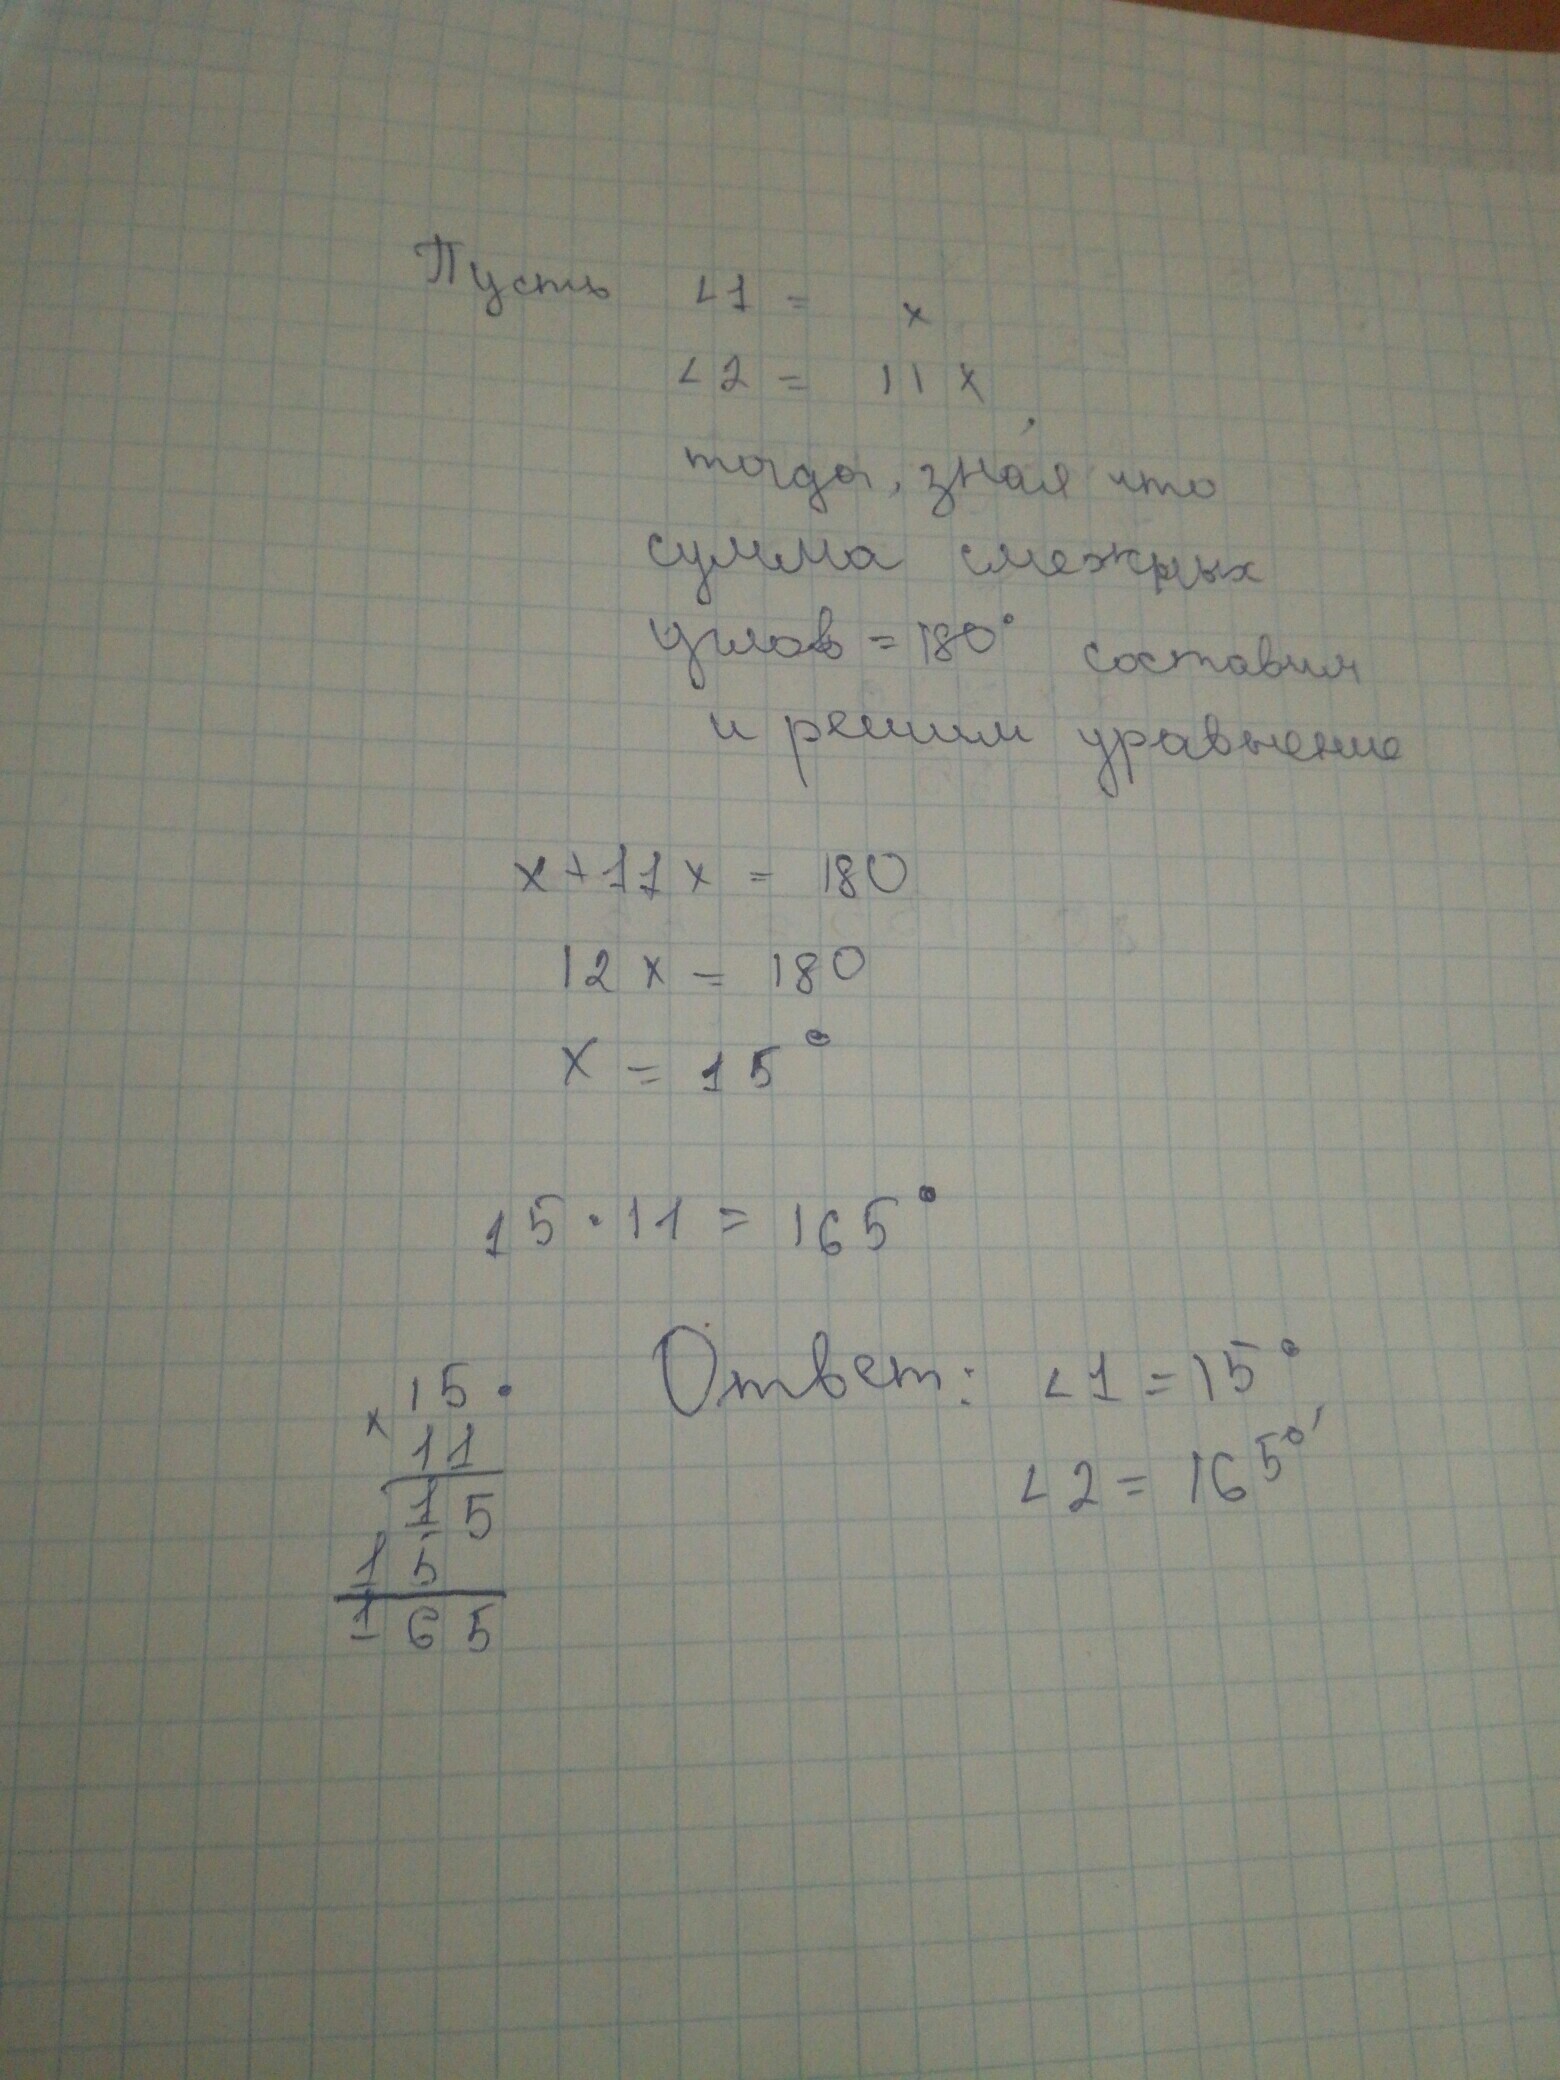 Пусть ∠1 = x
∠2 = 11x,
тогда, зная что
сумма смежных
углов = 180° составим
и решим уравнение
x + 11x = 180
12x = 180
x = 15°
15 · 11 = 165°
Ответ: ∠1 = 15°
∠2 = 165°
15
× 11
15
15
165